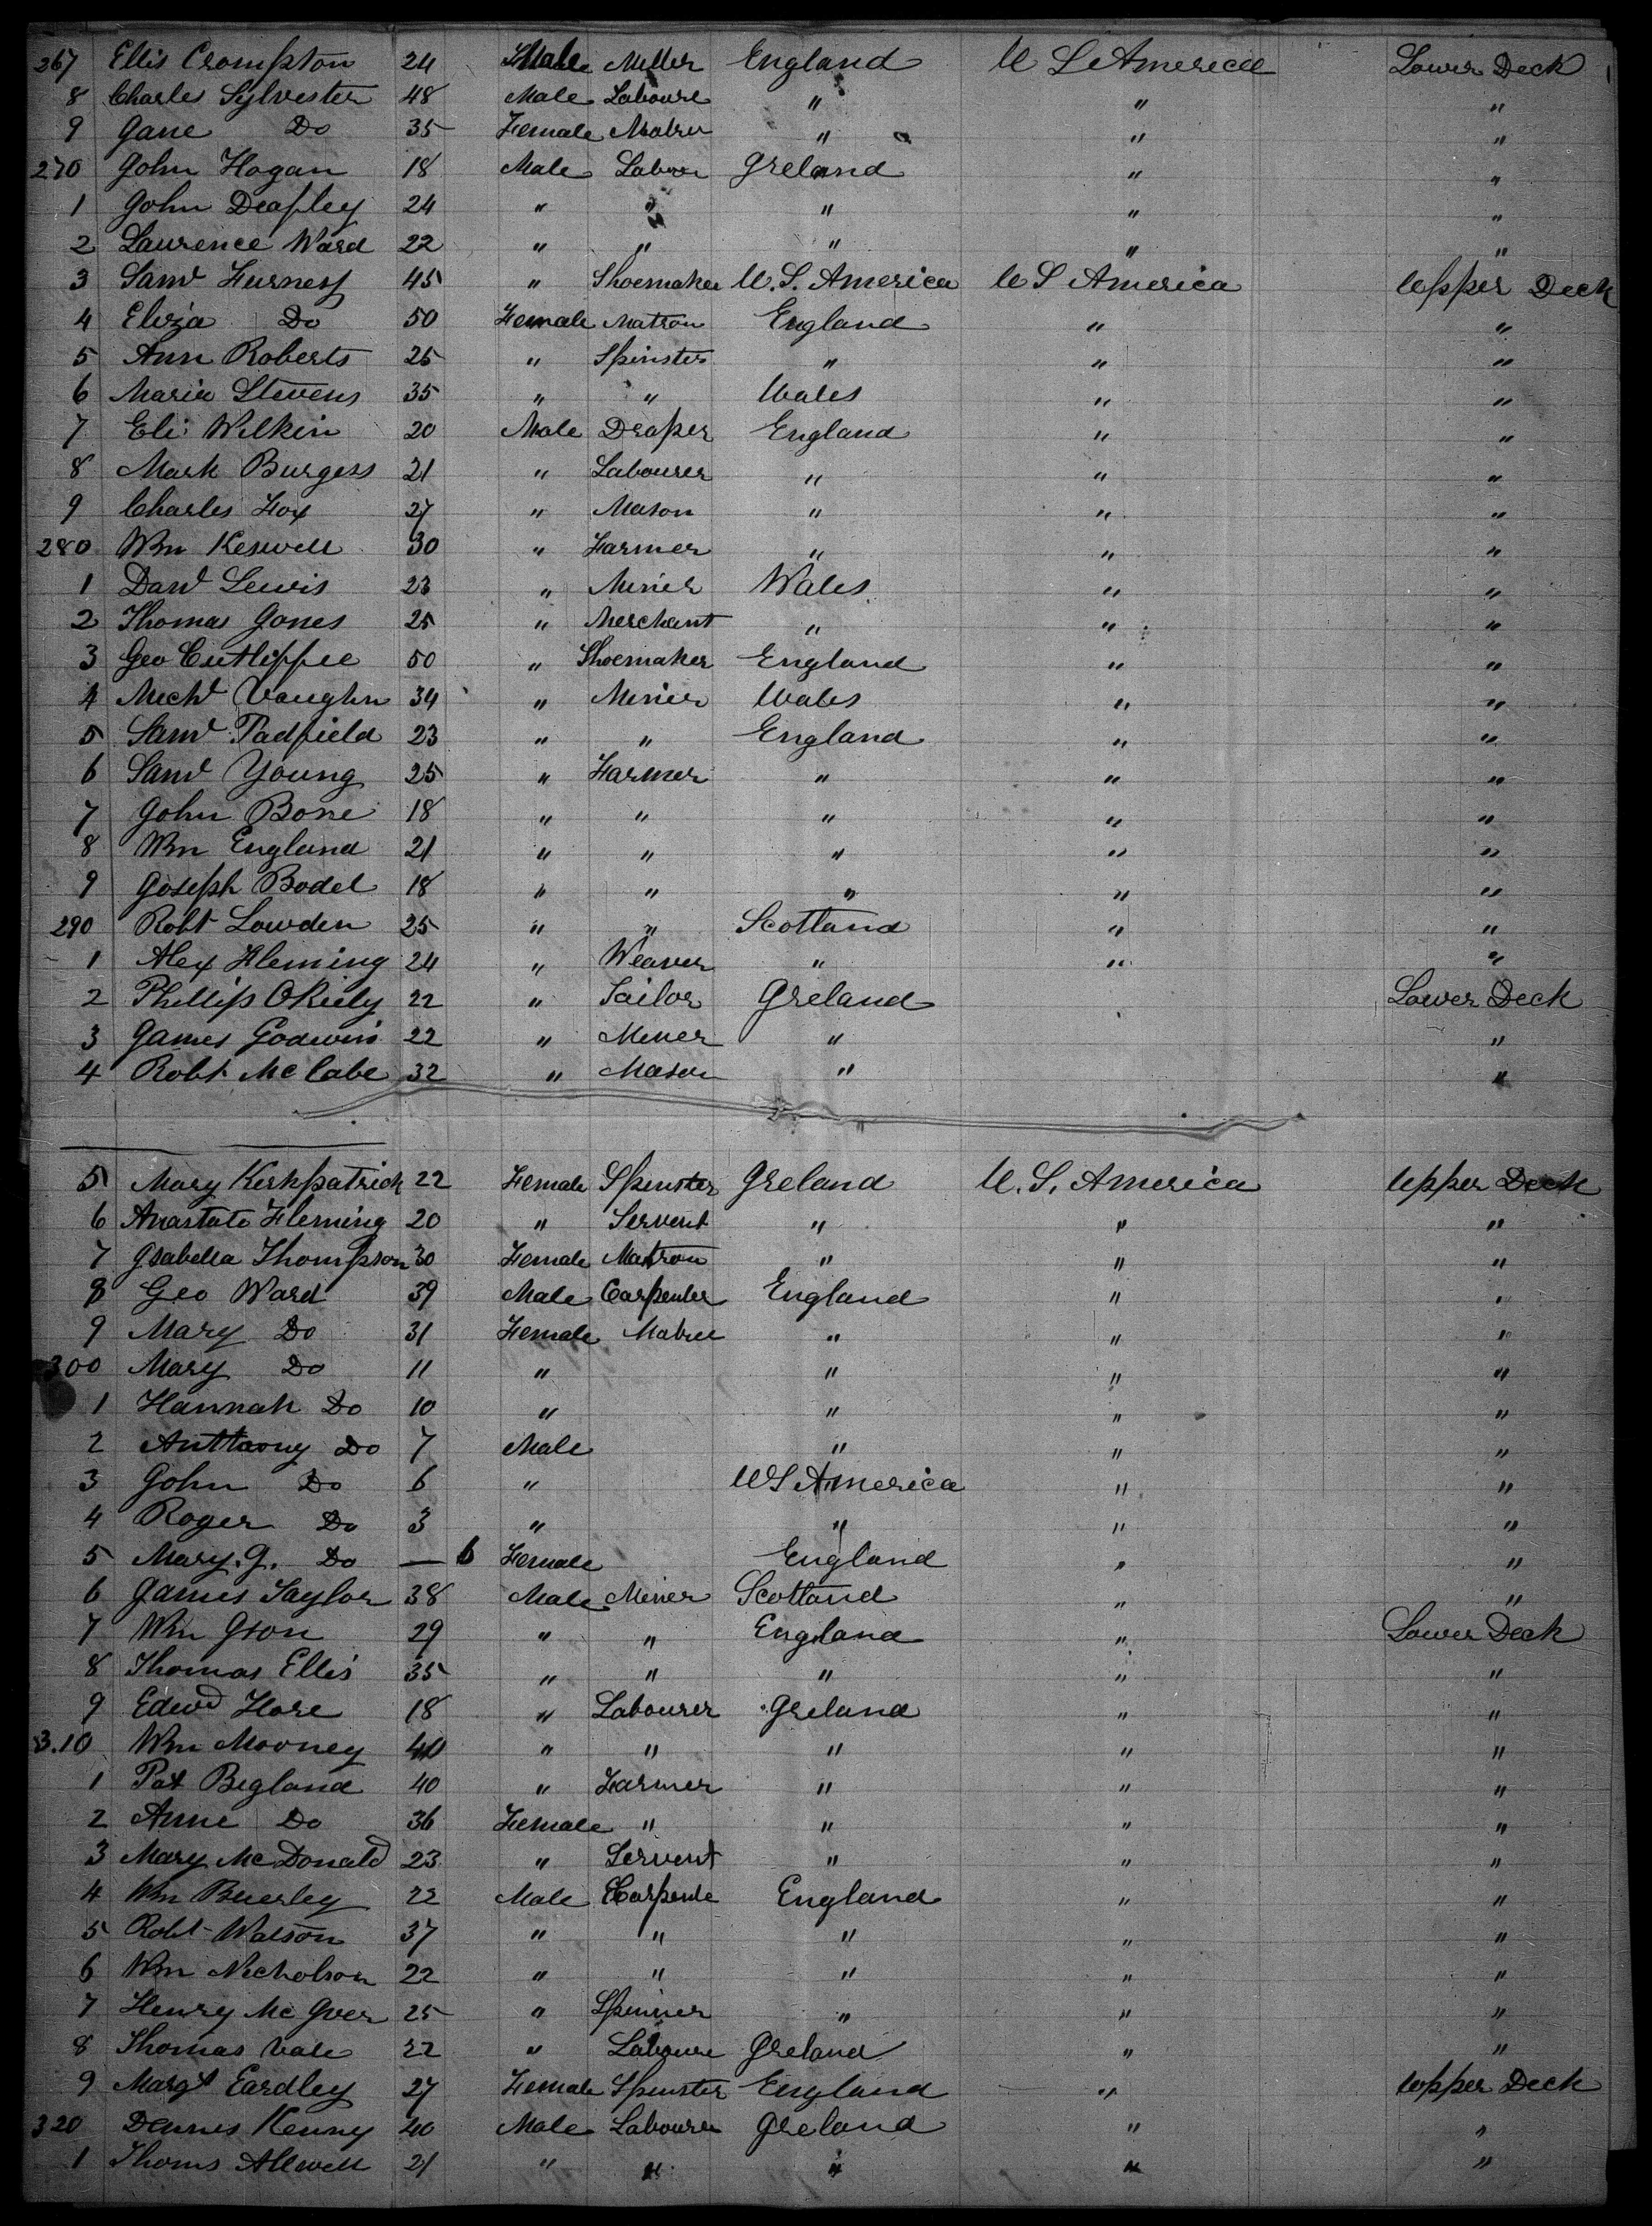 267 Ellis Crompton 24 Male Miller England U S America Lower Deck
8 Charles Sylvester 48 Male Laboure " " "
9 Jane Do 35 Female Matro " " "
270 John Hogan 18 Male Labor Ireland " "
1 John Deapley 24 " " " " "
2 Laurence Ward 22 " " " " "
3 Saml Furness 45 " Shoemaker U.S. America U S America Upper Deck
4 Eliza Do 50 Female Matron England " "
5 Ann Roberts 25 " Spinster " " "
6 Maria Stevens 35 " " Wales " "
7 Eli Wilkin 20 Male Draper England " "
8 Mark Burgess 21 " Labourer " " "
9 Charles Fox 27 " Mason " " "
280 Wm Keswell 30 " Farmer " " "
1 Davd Lewis 23 " Minier Wales " "
2 Thomas Jones 25 " Merchant " " "
3 Geo Cutlippe 50 " Shoemaker England " "
4 Michl Vaughn 34 " Minier Wales " "
5 Saml Padfield 23 " " England " "
6 Saml Young 25 " Farmer " " "
7 John Bone 18 " " " " "
8 Wm England 21 " " " " "
9 Joseph Bodel 18 " " " " "
290 Robt Lowden 25 " " Scotland " "
1 Alex Fleming 24 " Weaver " " "
2 Phillip OReily 22 " Tailor Ireland Lower Deck
3 James Godwin 22 " Miner " "
4 Robt McCabe 32 " Mason " "
5 Mary Kirkpatrick 22 Female Spinster Ireland U.S. America Upper Deck
6 Anastato Fleming 20 " Servent " " "
7 Isabella Thompson 30 Female Matron " " "
8 Geo Ward 39 Male Carpenter England " "
9 Mary Do 31 Female Matron " " "
300 Mary Do 11 " " " "
1 Hannah Do 10 " " " "
2 Anttaony Do 7 Male " " "
3 John Do 6 " U S America " "
4 Roger Do 3 " " " "
5 Mary. J. Do — 6 Female England " "
6 James Taylor 38 Male Minier Scotland " "
7 Wm Iron 29 " " England " Lower Deck
8 Thomas Ellis 35 " " " " "
9 Edwd Hore 18 " Labourer Ireland " "
3.10 Wm Mooney 40 " " " " "
1 Pat Begland 40 " Farmer " " "
2 Anne Do 36 Female " " " "
3 Mary McDonald 23 " Servent " " "
4 Wm Buerley 22 Male Carpente England " "
5 Robt Watson 37 " " " " "
6 Wm Nicholson 22 " " " " "
7 Henry Mc Iver 25 " Spinner " " "
8 Thomas Vale 22 " Laboure Ireland " "
9 Margt Eardley 27 Female Spinster England " Upper Deck
320 Dennis Kenny 40 Male Labourer Ireland " "
1 Thoms Allwell 21 " " " " "